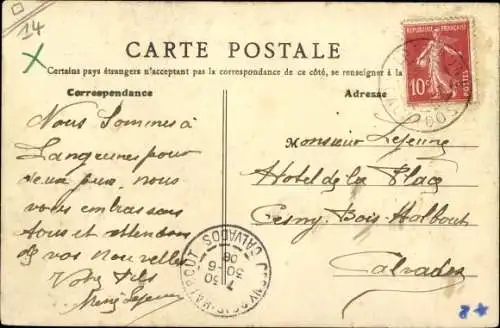 14
CARTE POSTALE
Certains pays étrangers n'acceptant pas la correspondance de ce côté, se renseigner à la
Correspondance
Adresse
REPUBLIQUE FRANÇAISE
10c
POSTES
Nous Sommes à
pour
nous
vous embrassons
tous et attendons
de vos nouvelles
Votre fils
Lejeune
Monsieur Lejeune
Hotel de la Place
Cesny-Bois-Halbout
Calvados
CALVADOS
7 30
30-6
08